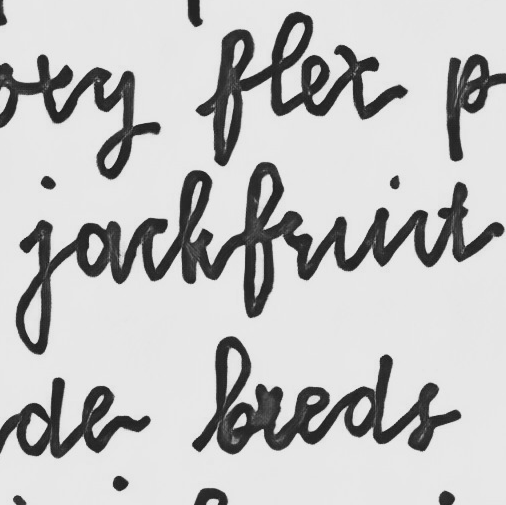 oxy flex p
jackfruit
de breds